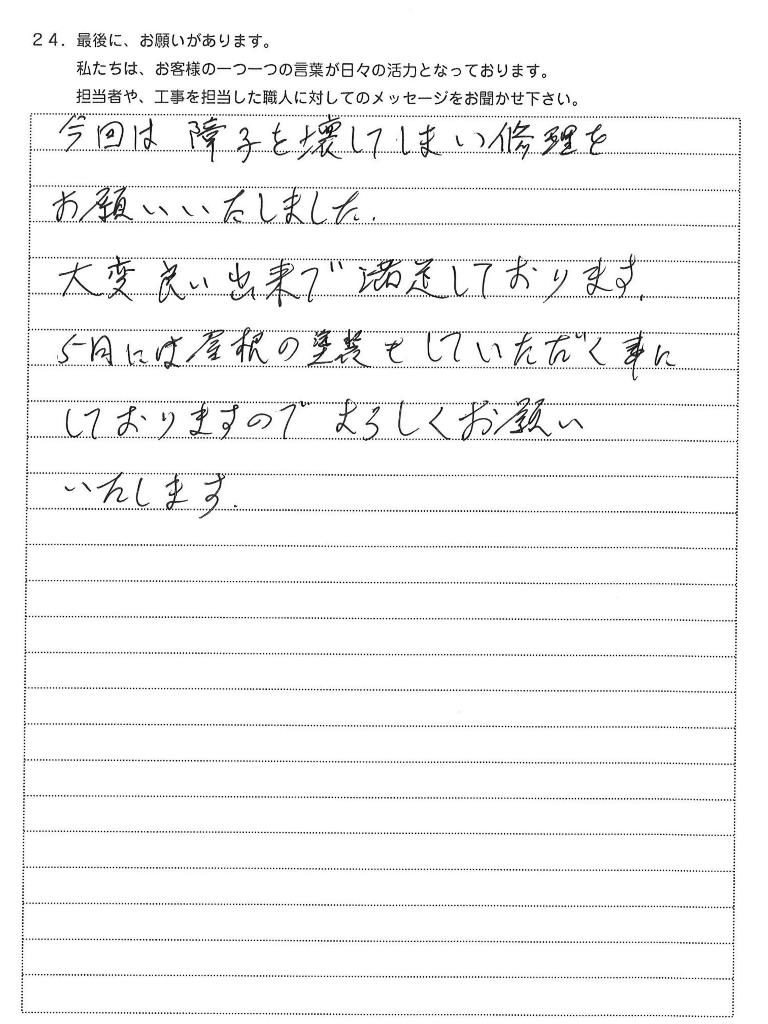 24．最後に、お願いがあります。
私たちは、お客様の一つ一つの言葉が日々の活力となっております。
担当者や、工事を担当した職人に対してのメッセージをお聞かせ下さい。
今回は 障子を壊してしまい修理を
お願いいたしました.
大変良い出来で 満足しております.
5月には屋根の塗装もしていただく事に
しておりますので よろしくお願い
いたします.